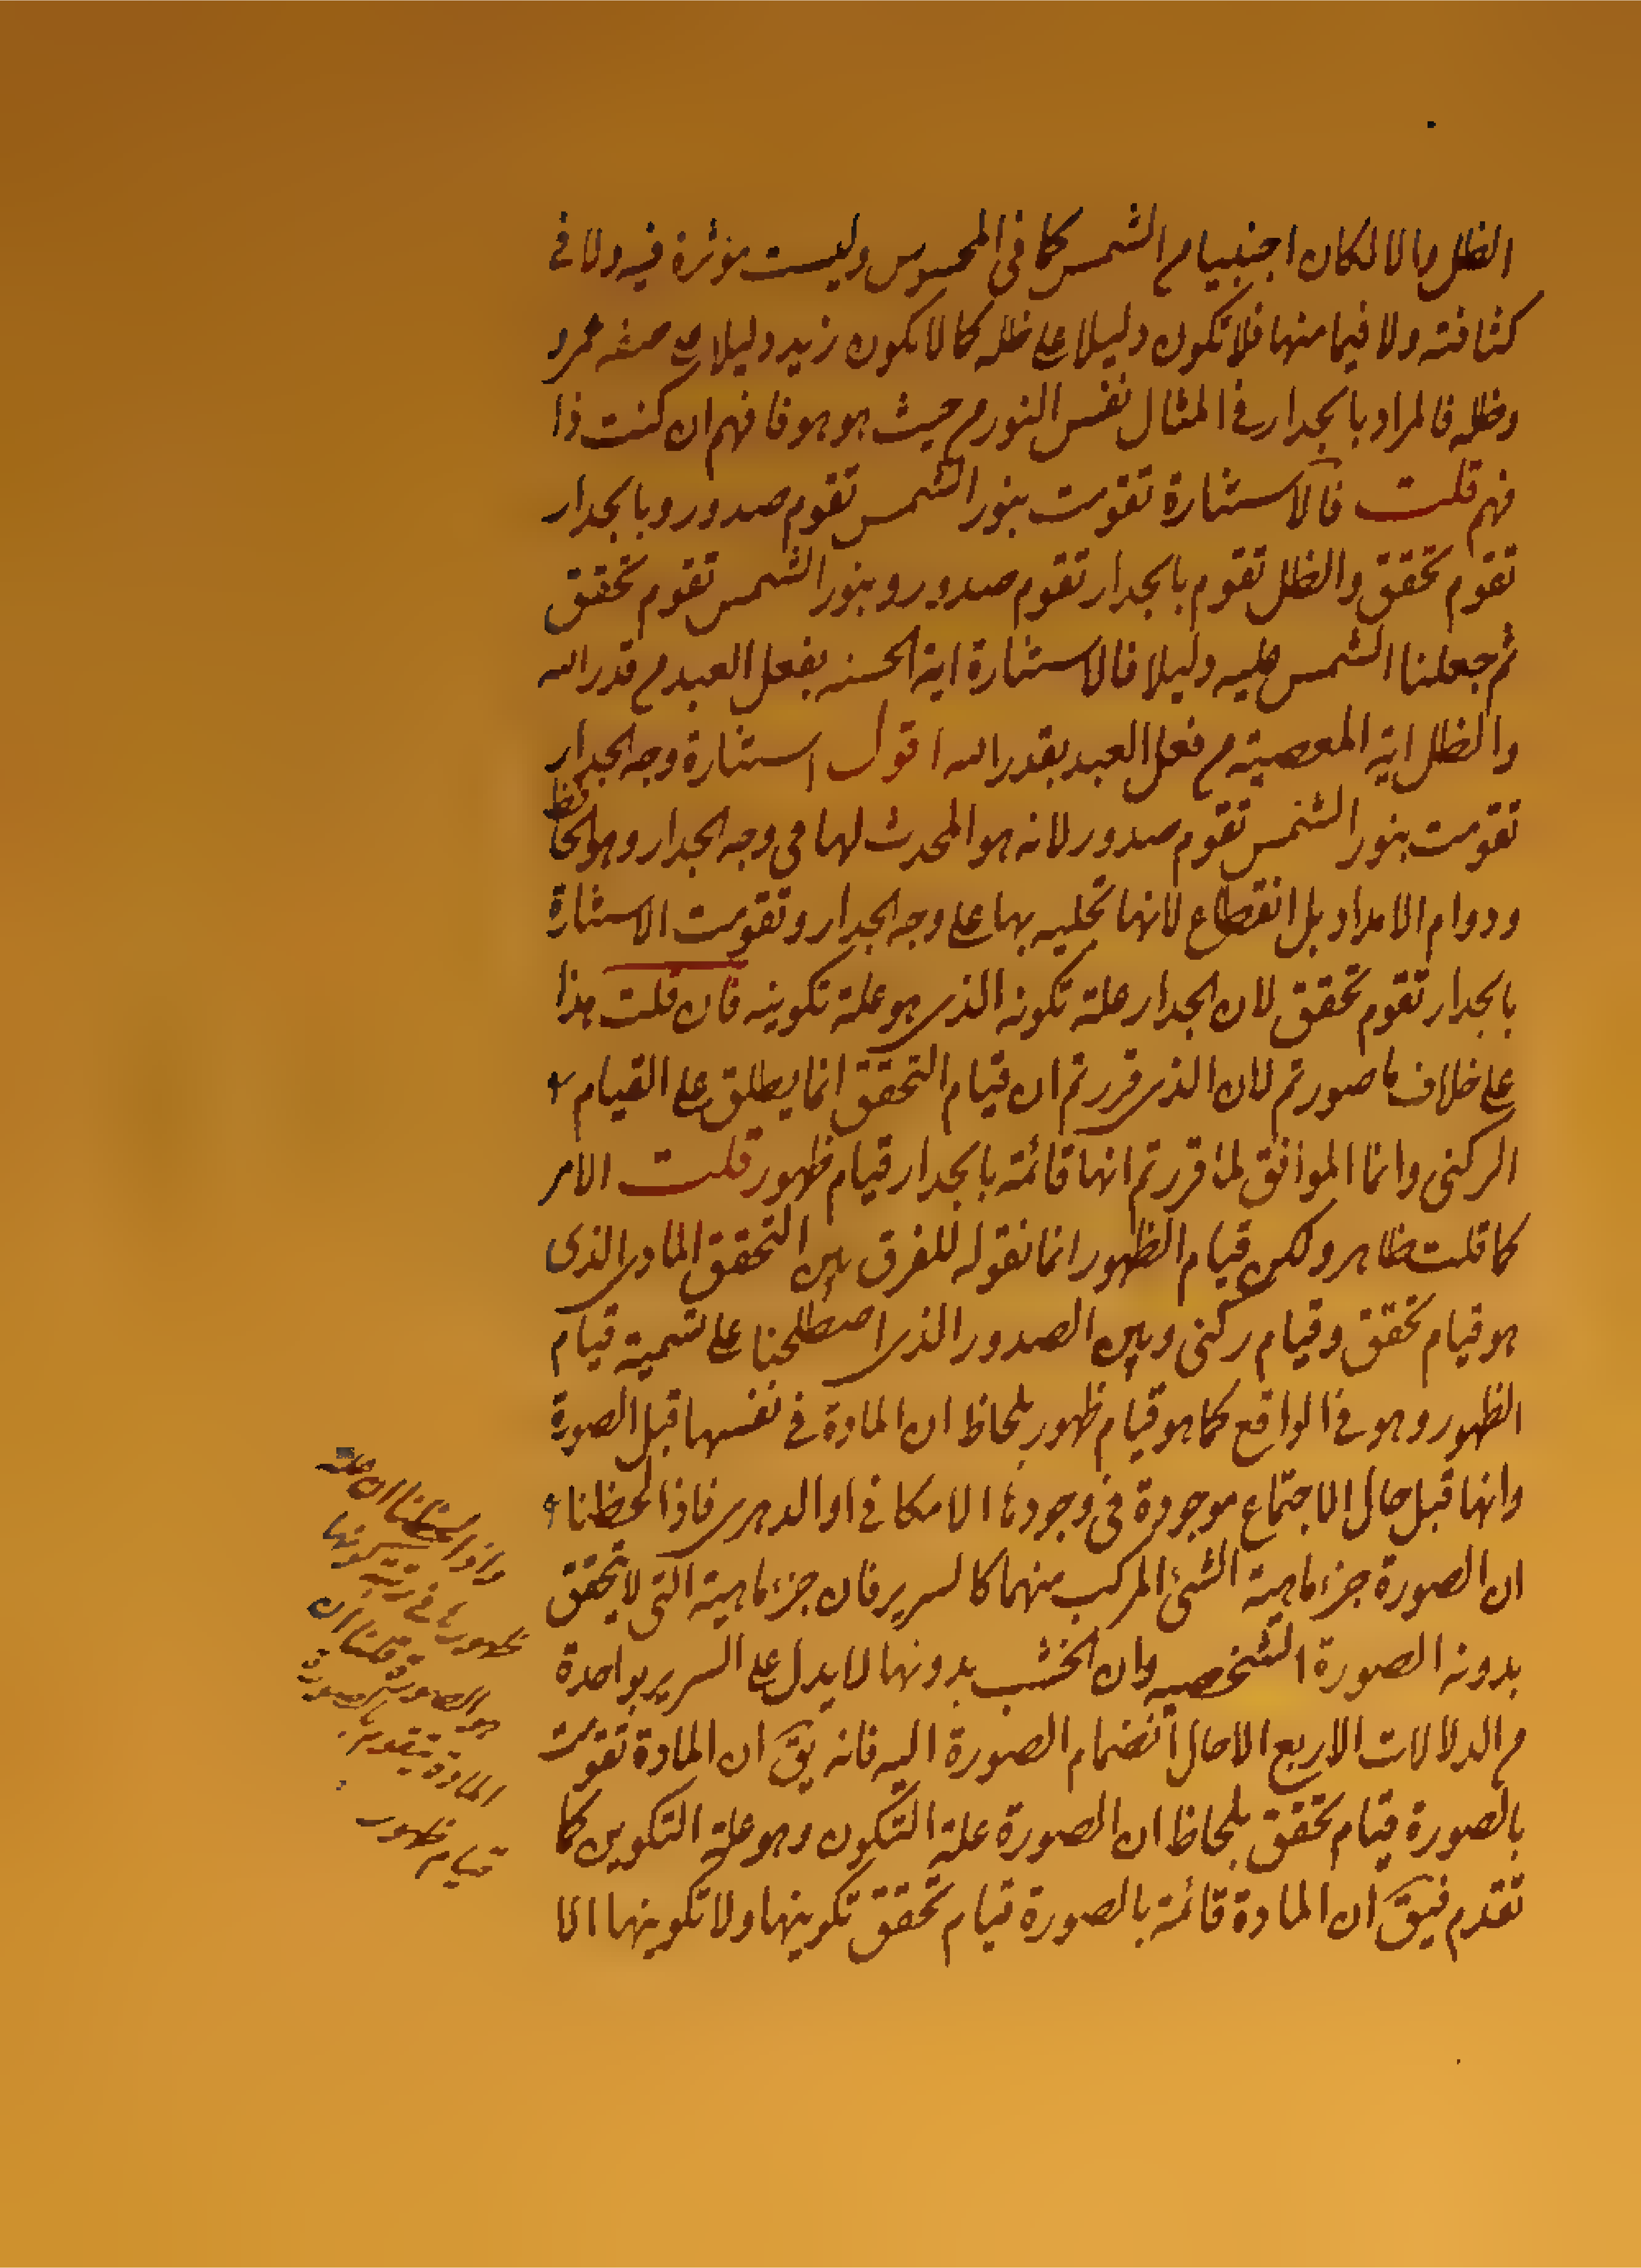 الظل والا لكان اجنبيا من الشمس كما فى المحسوس وليست مؤثرة فيه ولا فى
كثافته ولا فيما منها فلا تكون دليلا على ظله كما لا يكون زيد دليلا على صفة عمرو
وظله فالمراد بالجدار فى المثال نفس النور من حيث هو هو فافهم ان كنت ذا
فهم قلت فالاستنارة تقومت بنور الشمس تقوم صدور وبالجدار
تقوم تحقق والظل تقوم بالجدار تقوم صدور وبنور الشمس تقوم تحقق
ثم جعلنا الشمس عليه دليلا فالاستنارة اية الحسنه بفعل العبد من قدر الله
والظل اية المعصية من فعل العبد بقدر الله اقول استنارة وجه الجدار
تقومت بنور الشمس تقوم صدور لانه هو المحدث لها فى وجه الجدار وهو الحافظ
ودوام الامداد بل انقطاع لانها تجليه بها على وجه الجدار وتقومت الاستنارة
بالجدار تقوم تحقق لان الجدار علة تكونه الذى هو علة تكوينه فان قلت هذا
على خلاف ما صورتم لان الذى قررتم ان قيام التحقق انما يطلق على القيام
الركنى وانما الموافق لما قررتم انها قائمة بالجدار قيام ظهور قلت الامر
كما قلت ظاهر ولكن قيام الظهور انما نقوله للفرق بين التحقق المادى الذى
هو قيام تحقق وقيام ركنى وبين الصدور الذى اصطلحنا على تسمية قيام
الظهور وهو فى الواقع كما هو قيام ظهور بلحاظ ان المادة فى نفسها قبل الصورة
وانها قبل حال الاجتماع موجودة فى وجودها الامكانى او الدهرى فاذا لحظنا
ان الصورة جزء ماهية الشئ المركب منهما كالسرير فان جزء ماهية التى لا يتحقق
بدونه الصورة الشخصيه وان الخشب بدونها لا يدل على السرير بواحدة
من الدلالات الاربع الا حال انضمام الصورة اليه فانه يق ان المادة تقومت
بالصورة قيام تحقق بلحاظ ان الصورة علة التكون وهو علة التكوين كما
تقدم فيق ان المادة قائمة بالصورة قيام تحقق تكوينها ولا تكوينها الا
واذا لحظنا ان علة
ظهورها فى رتبة كونها
هو الصورة قلنا ان
المادة تتقوم بالصورة
قيام ظهور